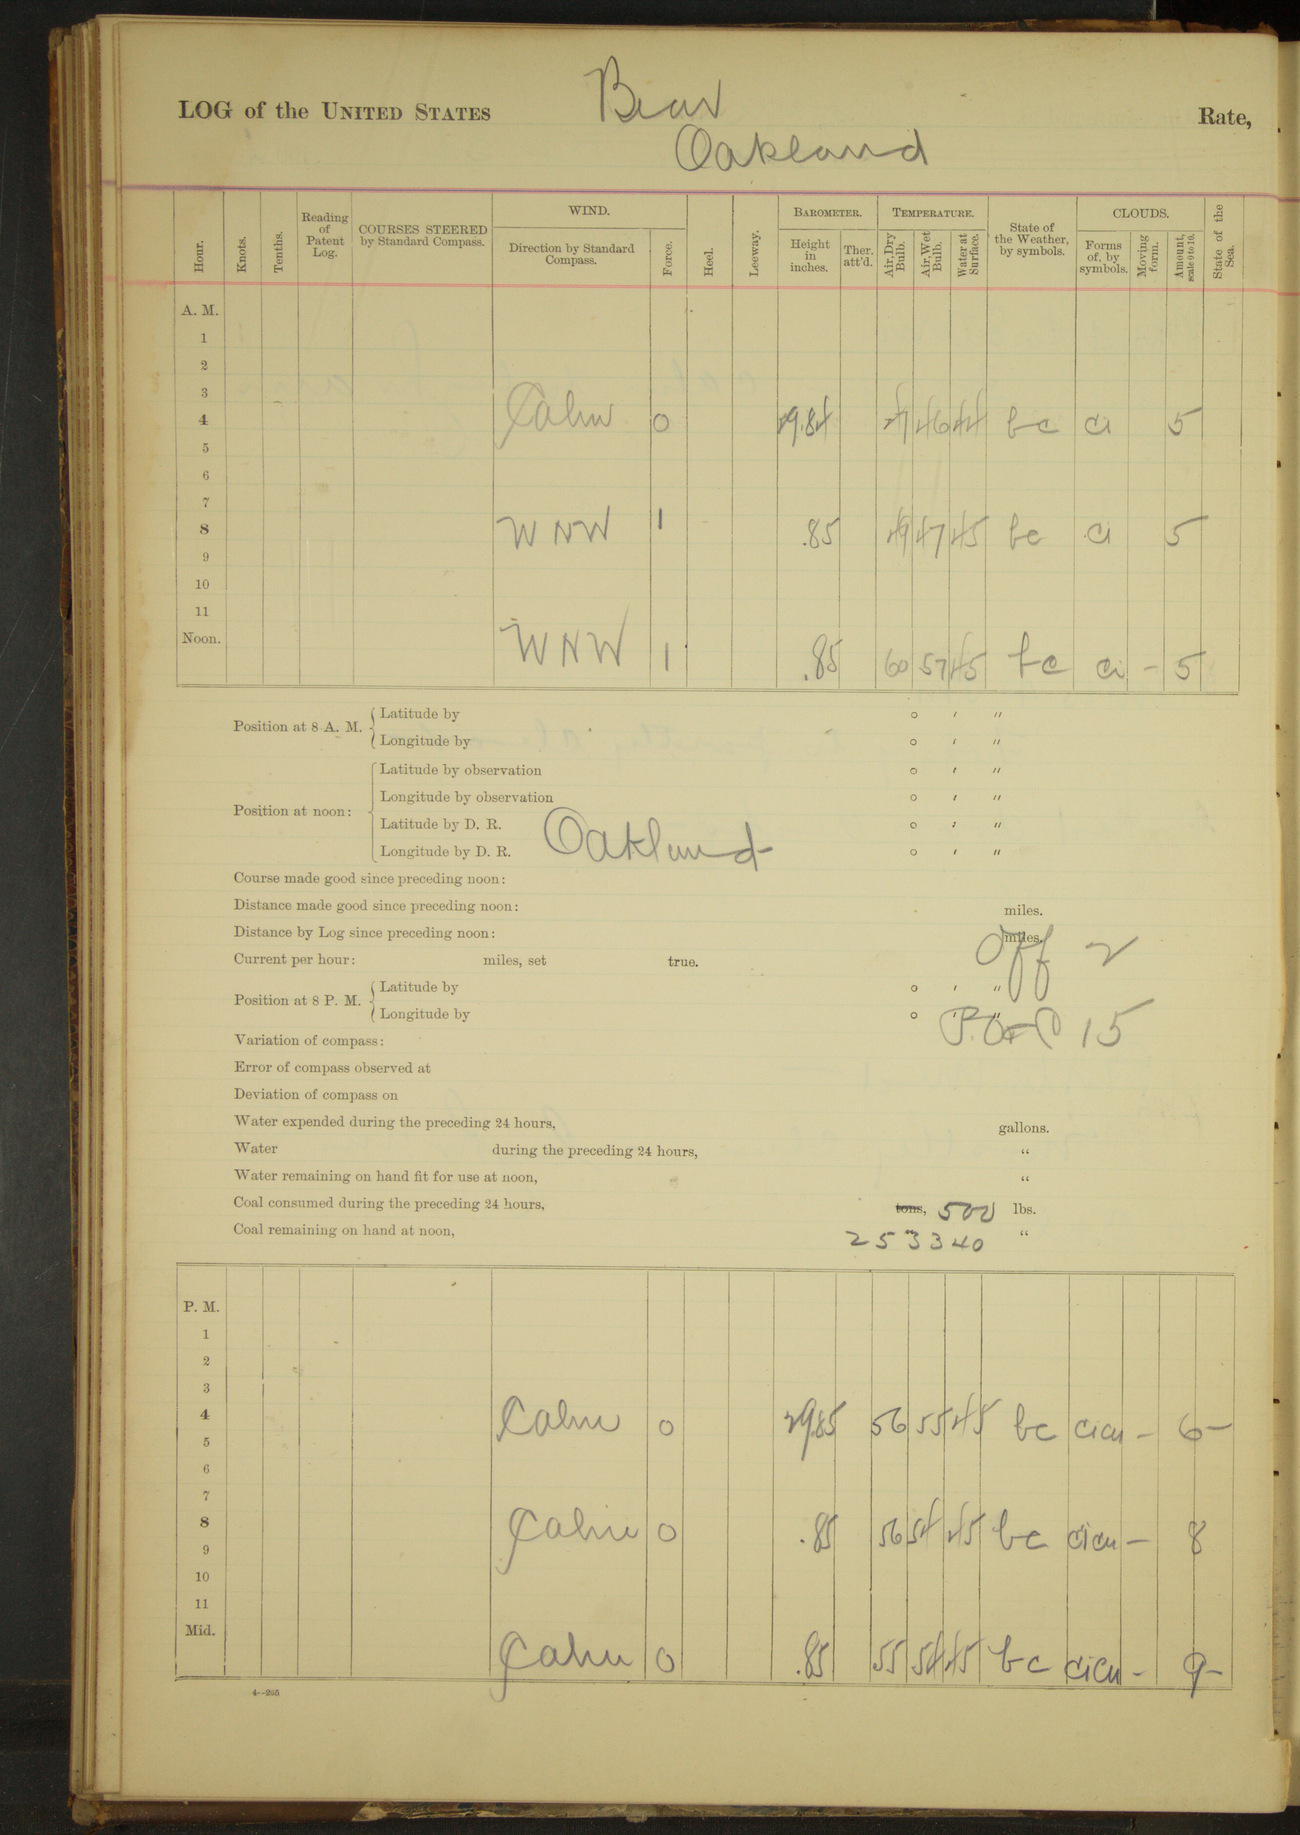 LOG of the UNITED STATES Bear Rate,
Oakland
Hour. Knots. Tenths. Reading of Patent Log. COURSES STEERED by Standard Compass. WIND. Direction by Standard Compass. Force. Heel. Leeway. BAROMETER. Height in inches. Ther. att'd. TEMPERATURE. Air, Dry Bulb. Air, Wet Bulb. Water at Surface. State of the Weather, by symbols. CLOUDS. Forms of, by symbols. Moving form. Amount, scale 0 to 10. State of the Sea.
A. M.
1
2
3
4 Calm 0 29.84 47 46 44 bc ci 5
5
6
7
8 WNW 1 .85 49 47 45 bc ci 5
9
10
11
Noon. WNW 1 .85 60 57 45 bc ci - 5
Position at 8 A. M. Latitude by ° ′ ″
Longitude by ° ′ ″
Position at noon: Latitude by observation ° ′ ″
Longitude by observation ° ′ ″
Latitude by D. R. ° ′ ″
Longitude by D. R. Oakland ° ′ ″
Course made good since preceding noon:
Distance made good since preceding noon: miles.
Distance by Log since preceding noon: miles. Off 2
Current per hour: miles, set true.
Position at 8 P. M. Latitude by ° ′ ″
Longitude by ° ′ ″ 15
Variation of compass:
Error of compass observed at
Deviation of compass on
Water expended during the preceding 24 hours, gallons.
Water during the preceding 24 hours, "
Water remaining on hand fit for use at noon, "
Coal consumed during the preceding 24 hours, tons, 500 lbs.
Coal remaining on hand at noon, 253340 "
P. M.
1
2
3
4 Calm 0 29.85 56 55 45 bc cicu - 6 -
5
6
7
8 Calm 0 .85 56 54 45 bc cicu - 8
9
10
11
Mid. Calm 0 .85 55 54 45 bc cicu - 9 -
4--265